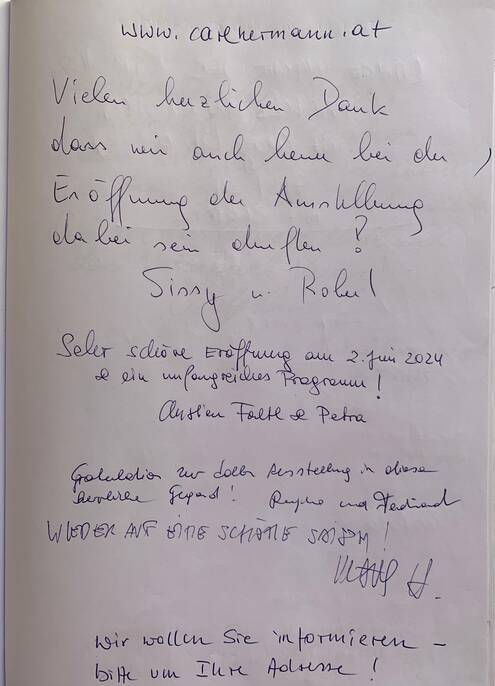 www.carlhermann.at
Vielen herzlichen Dank
dass wir auch heuer bei der
Eröffnung der Ausstellung
dabei sein durften!
Sissy u. Robert
Sehr schöne Eröffnung am 2. Juni 2024
& ein umfangreiches Programm!
& Petra
Gratulation zur tollen Ausstellung in dieser
herrlichen Gegend! und Ferdinand
WIEDER AUF EINE SCHÖNE SAISON!
H.
Wir wollen Sie informieren –
bitte um Ihre Adresse!